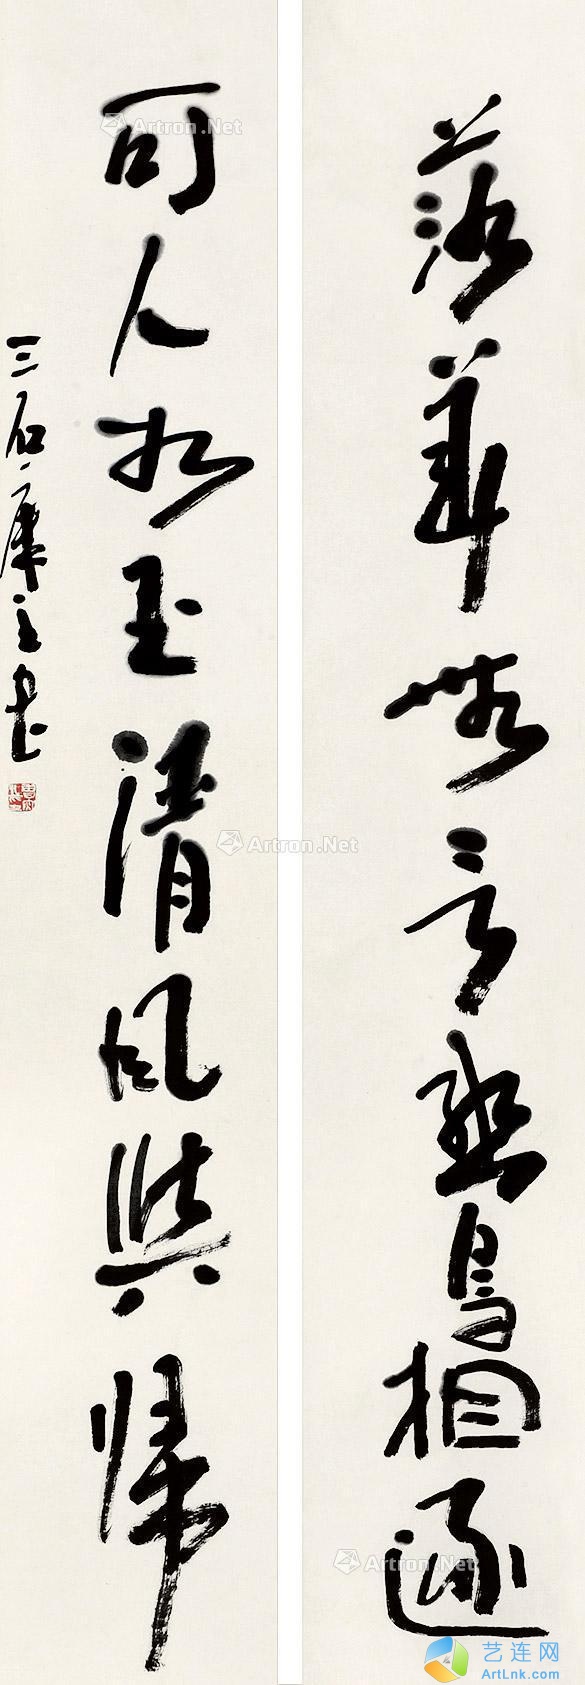 落華無言幽鳥相逐
可人如玉清風與歸
三石主書
Artron.Net
Artron.Net
Artron.Net
Artron.Net
艺连网
ArtLnk.com